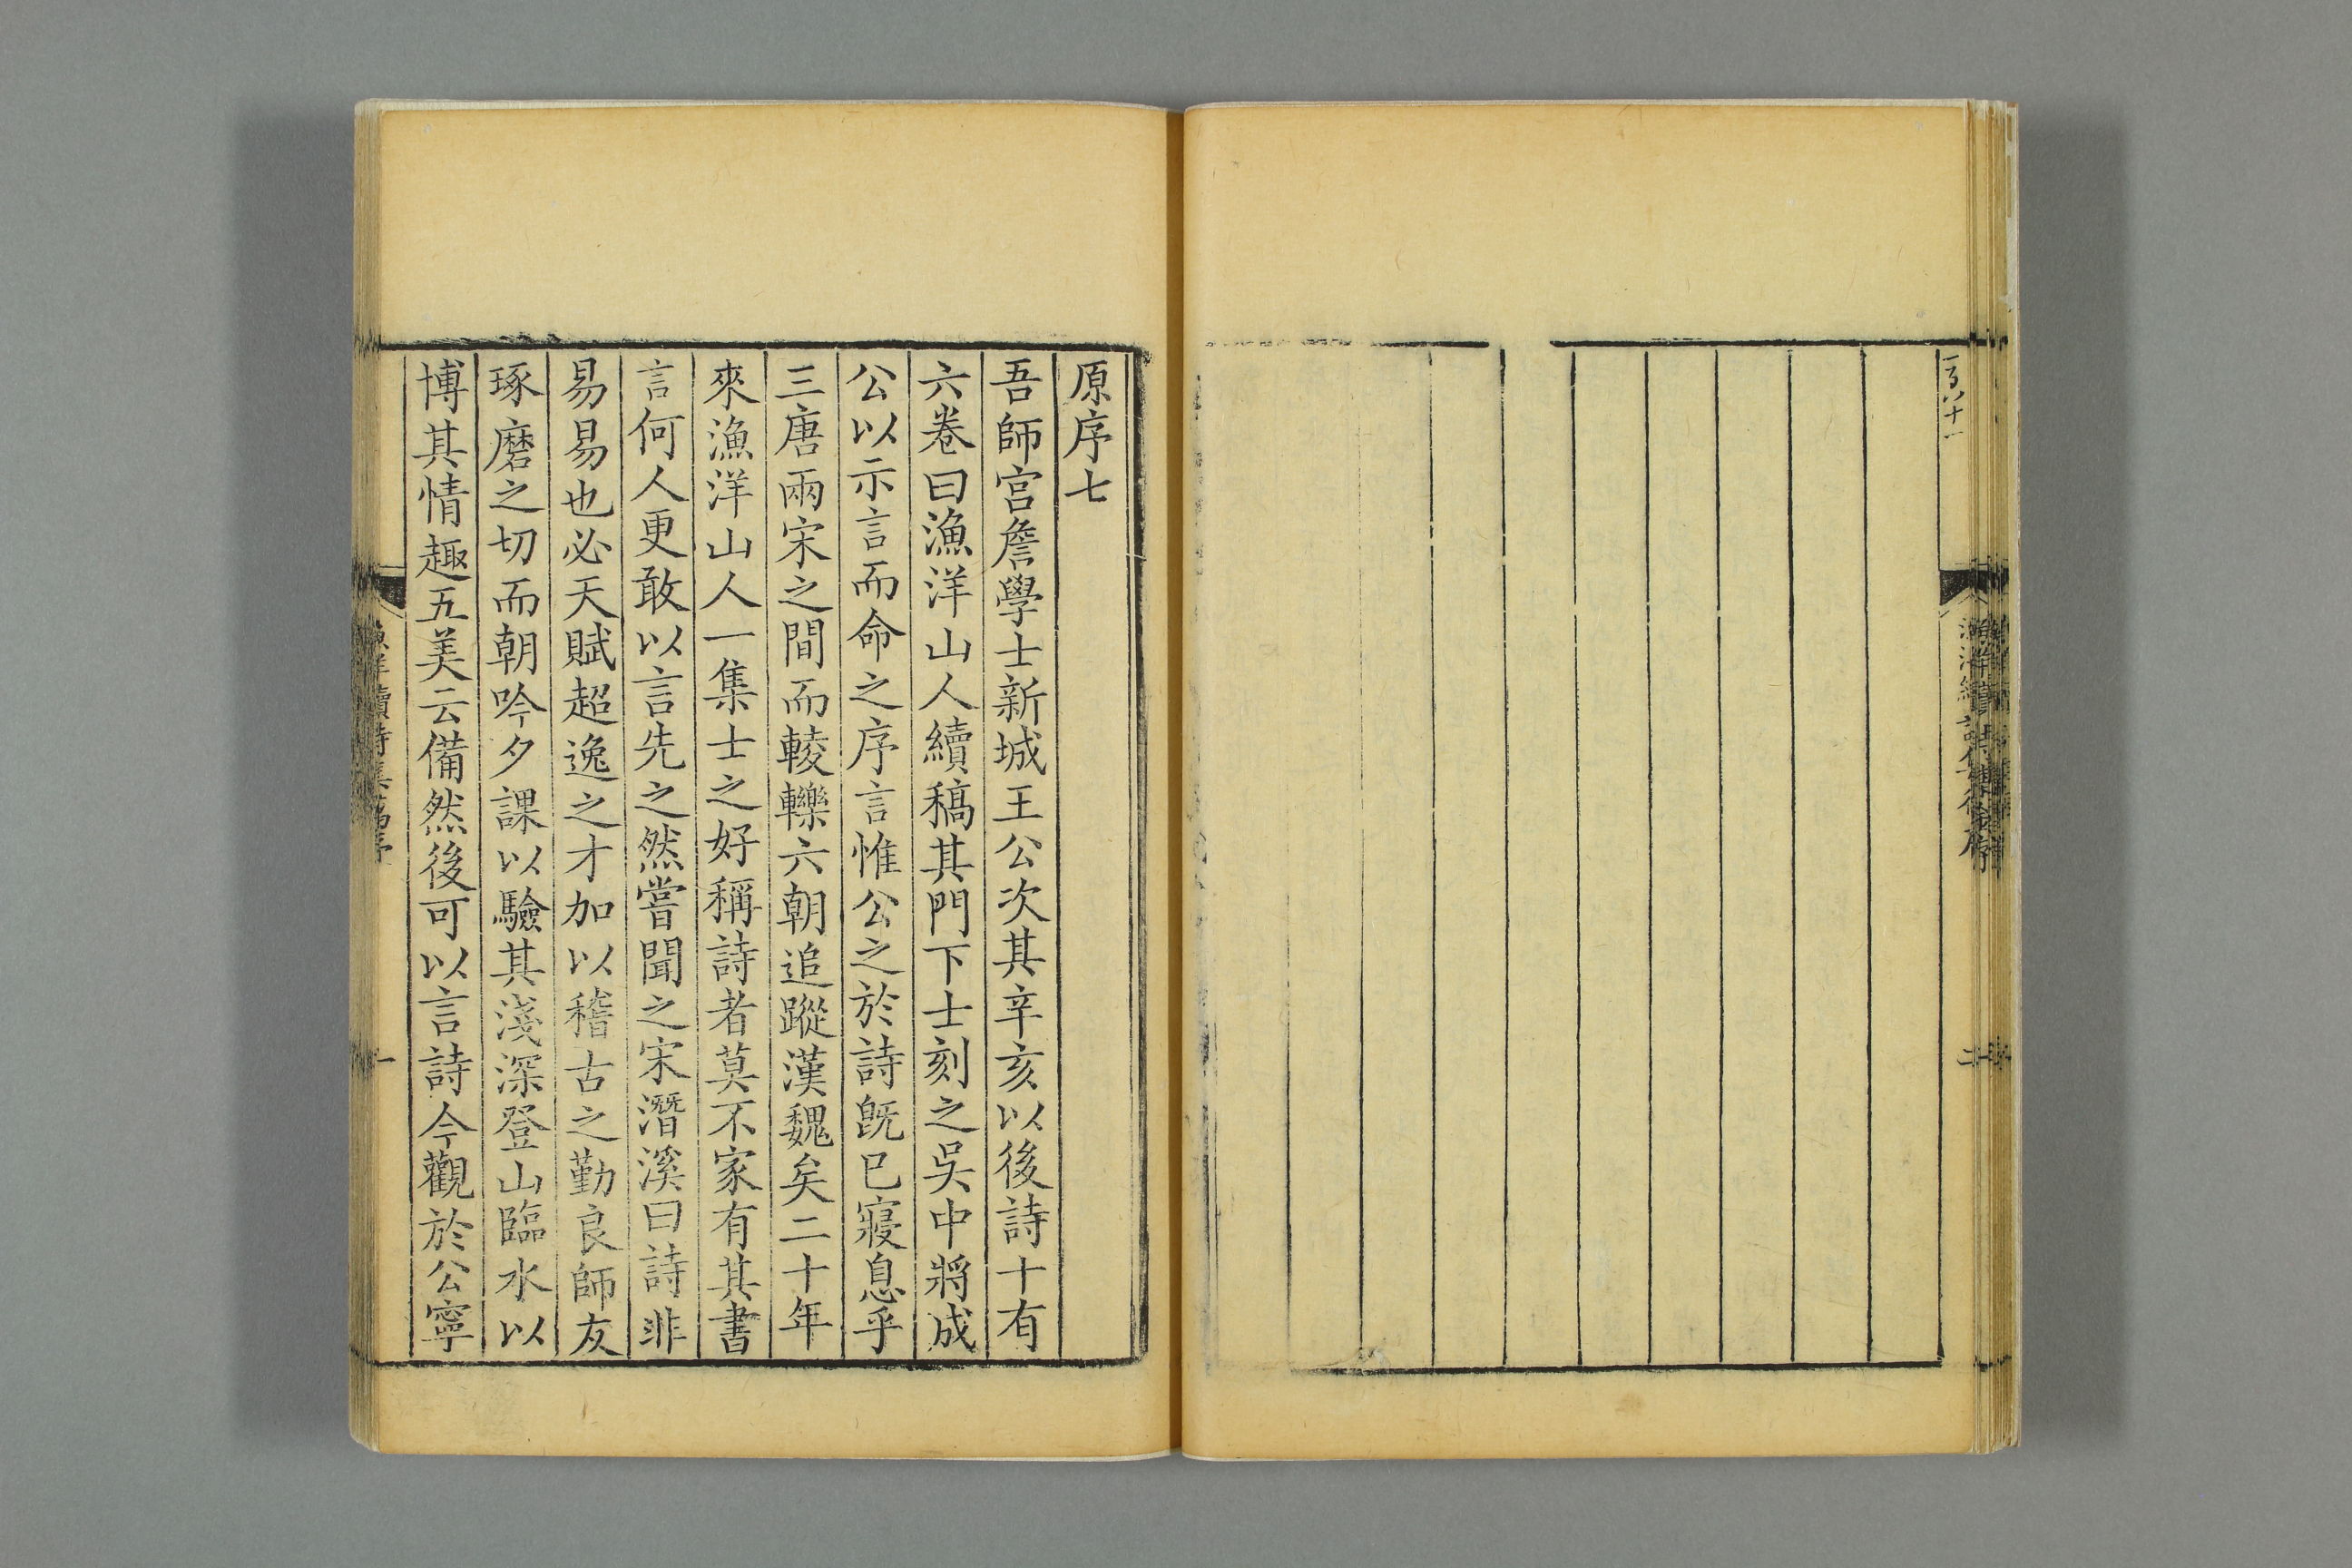 原序七
吾師宮詹學士新城王公次其辛亥以後詩十有
六卷曰漁洋山人續稿其門下士刻之吳中將成
公以示言而命之序言惟公之於詩旣已寢息乎
三唐兩宋之間而輘轢六朝追蹤漢魏矣二十年
來漁洋山人一集士之好稱詩者莫不家有其書
言何人更敢以言先之然嘗聞之宋潛溪曰詩非
易易也必天賦超逸之才加以稽古之勤良師友
琢磨之切而朝吟夕課以驗其淺深登山臨水以
博其情趣五美云備然後可以言詩今觀於公寧
一